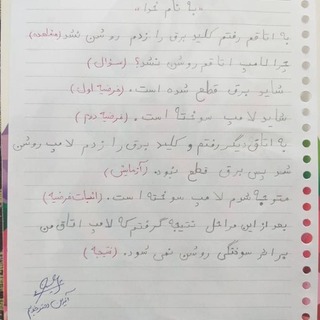 «به نام خدا»
به اتاقم رفتم کلید برق را زدم روشن نشد (مشاهده)
چرا لامپ اتاقم روشن نشد؟ (سؤال)
شاید برق قطع شده است. (فرضیه اول)
شاید لامپ سوخته است. (فرضیه دوم)
به اتاق دیگر رفتم و کلید برق را زدم لامپ روشن
شد پس برق قطع نبود. (آزمایش)
متوجه شدم لامپ سوخته است. (اثبات فرضیه)
بعد از این مراحل نتیجه گرفتم که لامپ اتاق من
بر اثر سوختگی روشن نمی شود. (نتیجه)